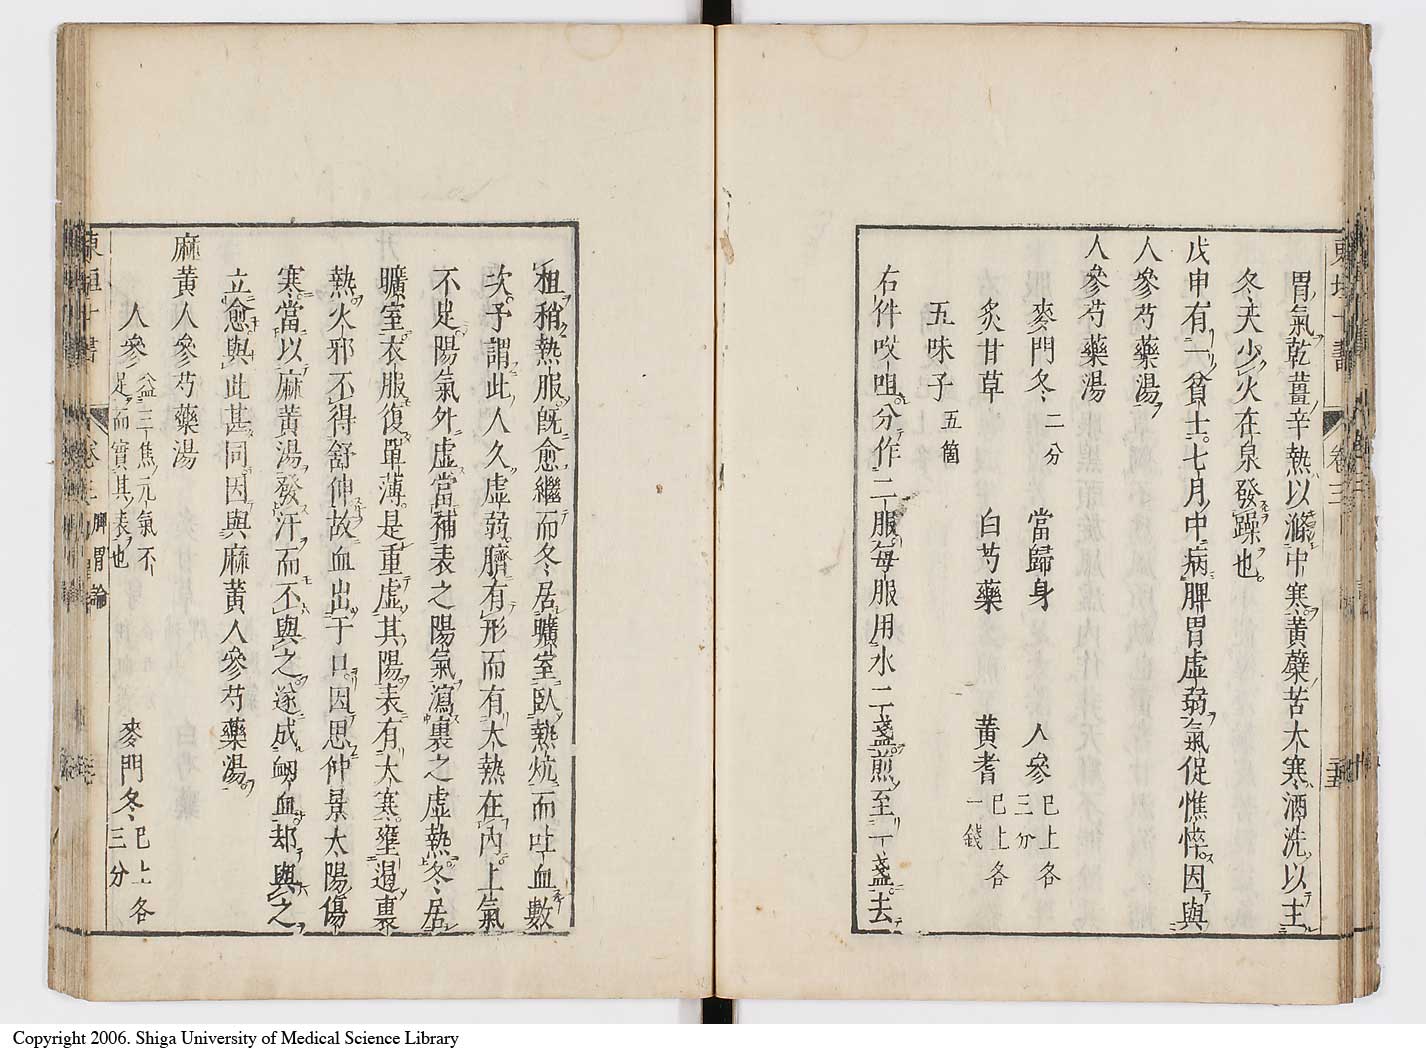 胃氣乾薑辛熱以滌中寒黄蘗苦大寒酒洗以主
冬天少火在泉發躁也
戊申有一貧士七月中病脾胃虛弱氣促憔悴因與
人參芍藥湯
人參芍藥湯
麥門冬二分 當歸身 人參已上各三分
炙甘草 白芍藥 黄耆已上各一錢
五味子五箇
右件㕮咀分作二服每服用水二盞煎至一盞去
柤稍熱服旣愈繼而冬居曠室臥熱炕而吐血數
次予謂此人久虛弱臍有形而有大熱在內上氣
不足陽氣外虛當補表之陽氣瀉裏之虛熱冬居
曠室衣服復單薄是重虛其陽表有大寒壅遏裏
熱火邪不得舒伸故血出于口因思仲景太陽傷
寒當以麻黄湯發汗而不與之遂成衂血却與之
立愈與此甚同因與麻黄人參芍藥湯
麻黄人參芍藥湯
人參益三焦元氣不足而實其表也 麥門冬已上各三分
東垣十書 卷三 脾胃論
東垣十書 卷三
Copyright 2006. Shiga University of Medical Science Library